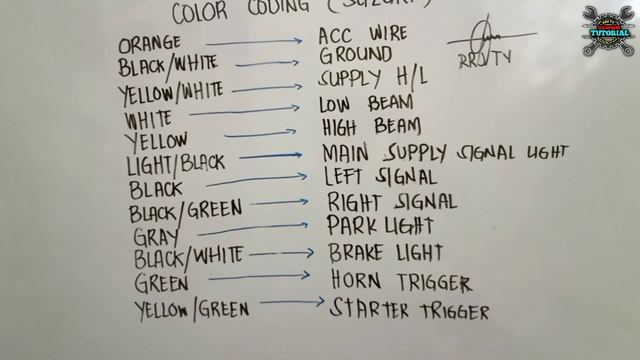 COLOR CODING (SUZUKI)
ORANGE → ACC WIRE
BLACK/WHITE → GROUND
YELLOW/WHITE → SUPPLY H/L
WHITE → LOW BEAM
YELLOW → HIGH BEAM
LIGHT/BLACK → MAIN SUPPLY SIGNAL LIGHT
BLACK → LEFT SIGNAL
BLACK/GREEN → RIGHT SIGNAL
GRAY → PARK LIGHT
BLACK/WHITE → BRAKE LIGHT
GREEN → HORN TRIGGER
YELLOW/GREEN → STARTER TRIGGER
TUTORIAL